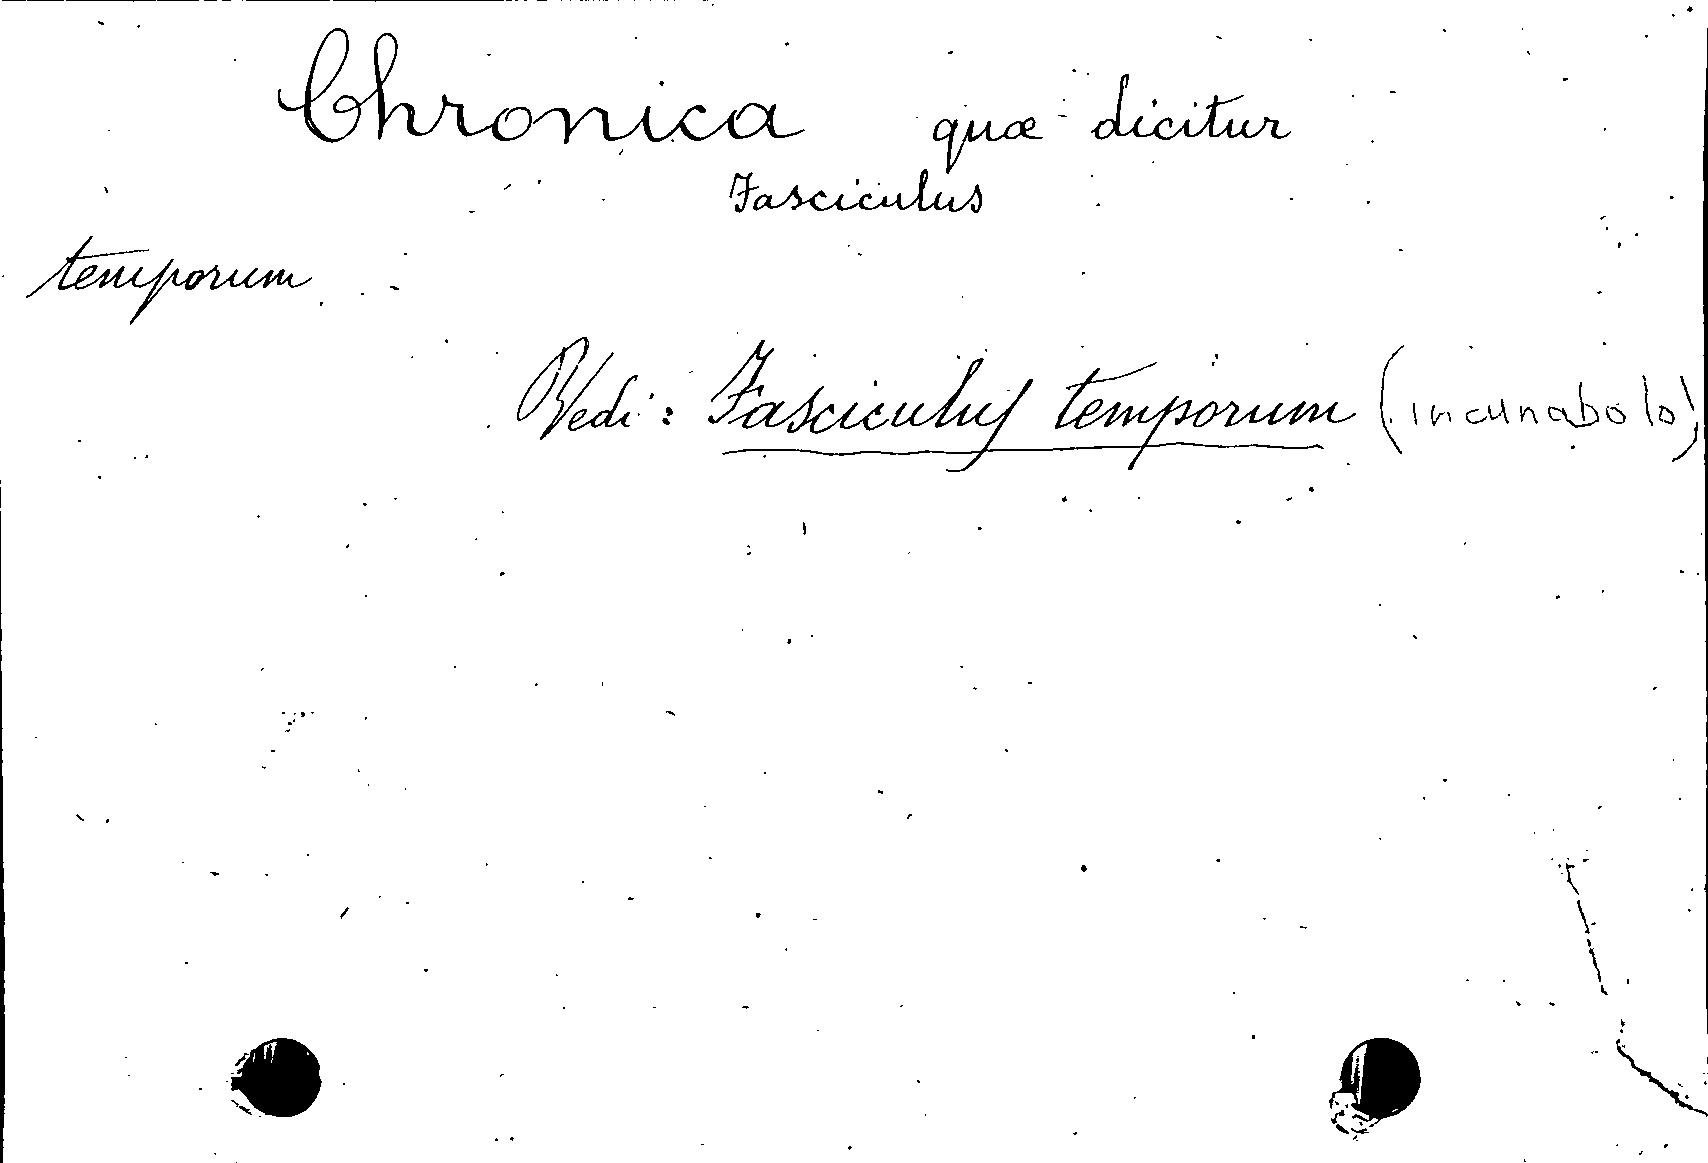 Chronica quæ dicitur
Fasciculus
temporum
Vedi: Fasciculus temporum (incunabolo)